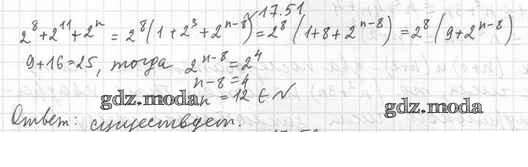 17.51
2⁸+2¹¹+2ⁿ = 2⁸(1+2³+2ⁿ⁻⁸)=2⁸(1+8+2ⁿ⁻⁸)=2⁸(9+2ⁿ⁻⁸)
9+16=25, тогда 2ⁿ⁻⁸=2⁴
n-8=4
gdz.moda n =12 ∈ N gdz.moda
Ответ: существует.